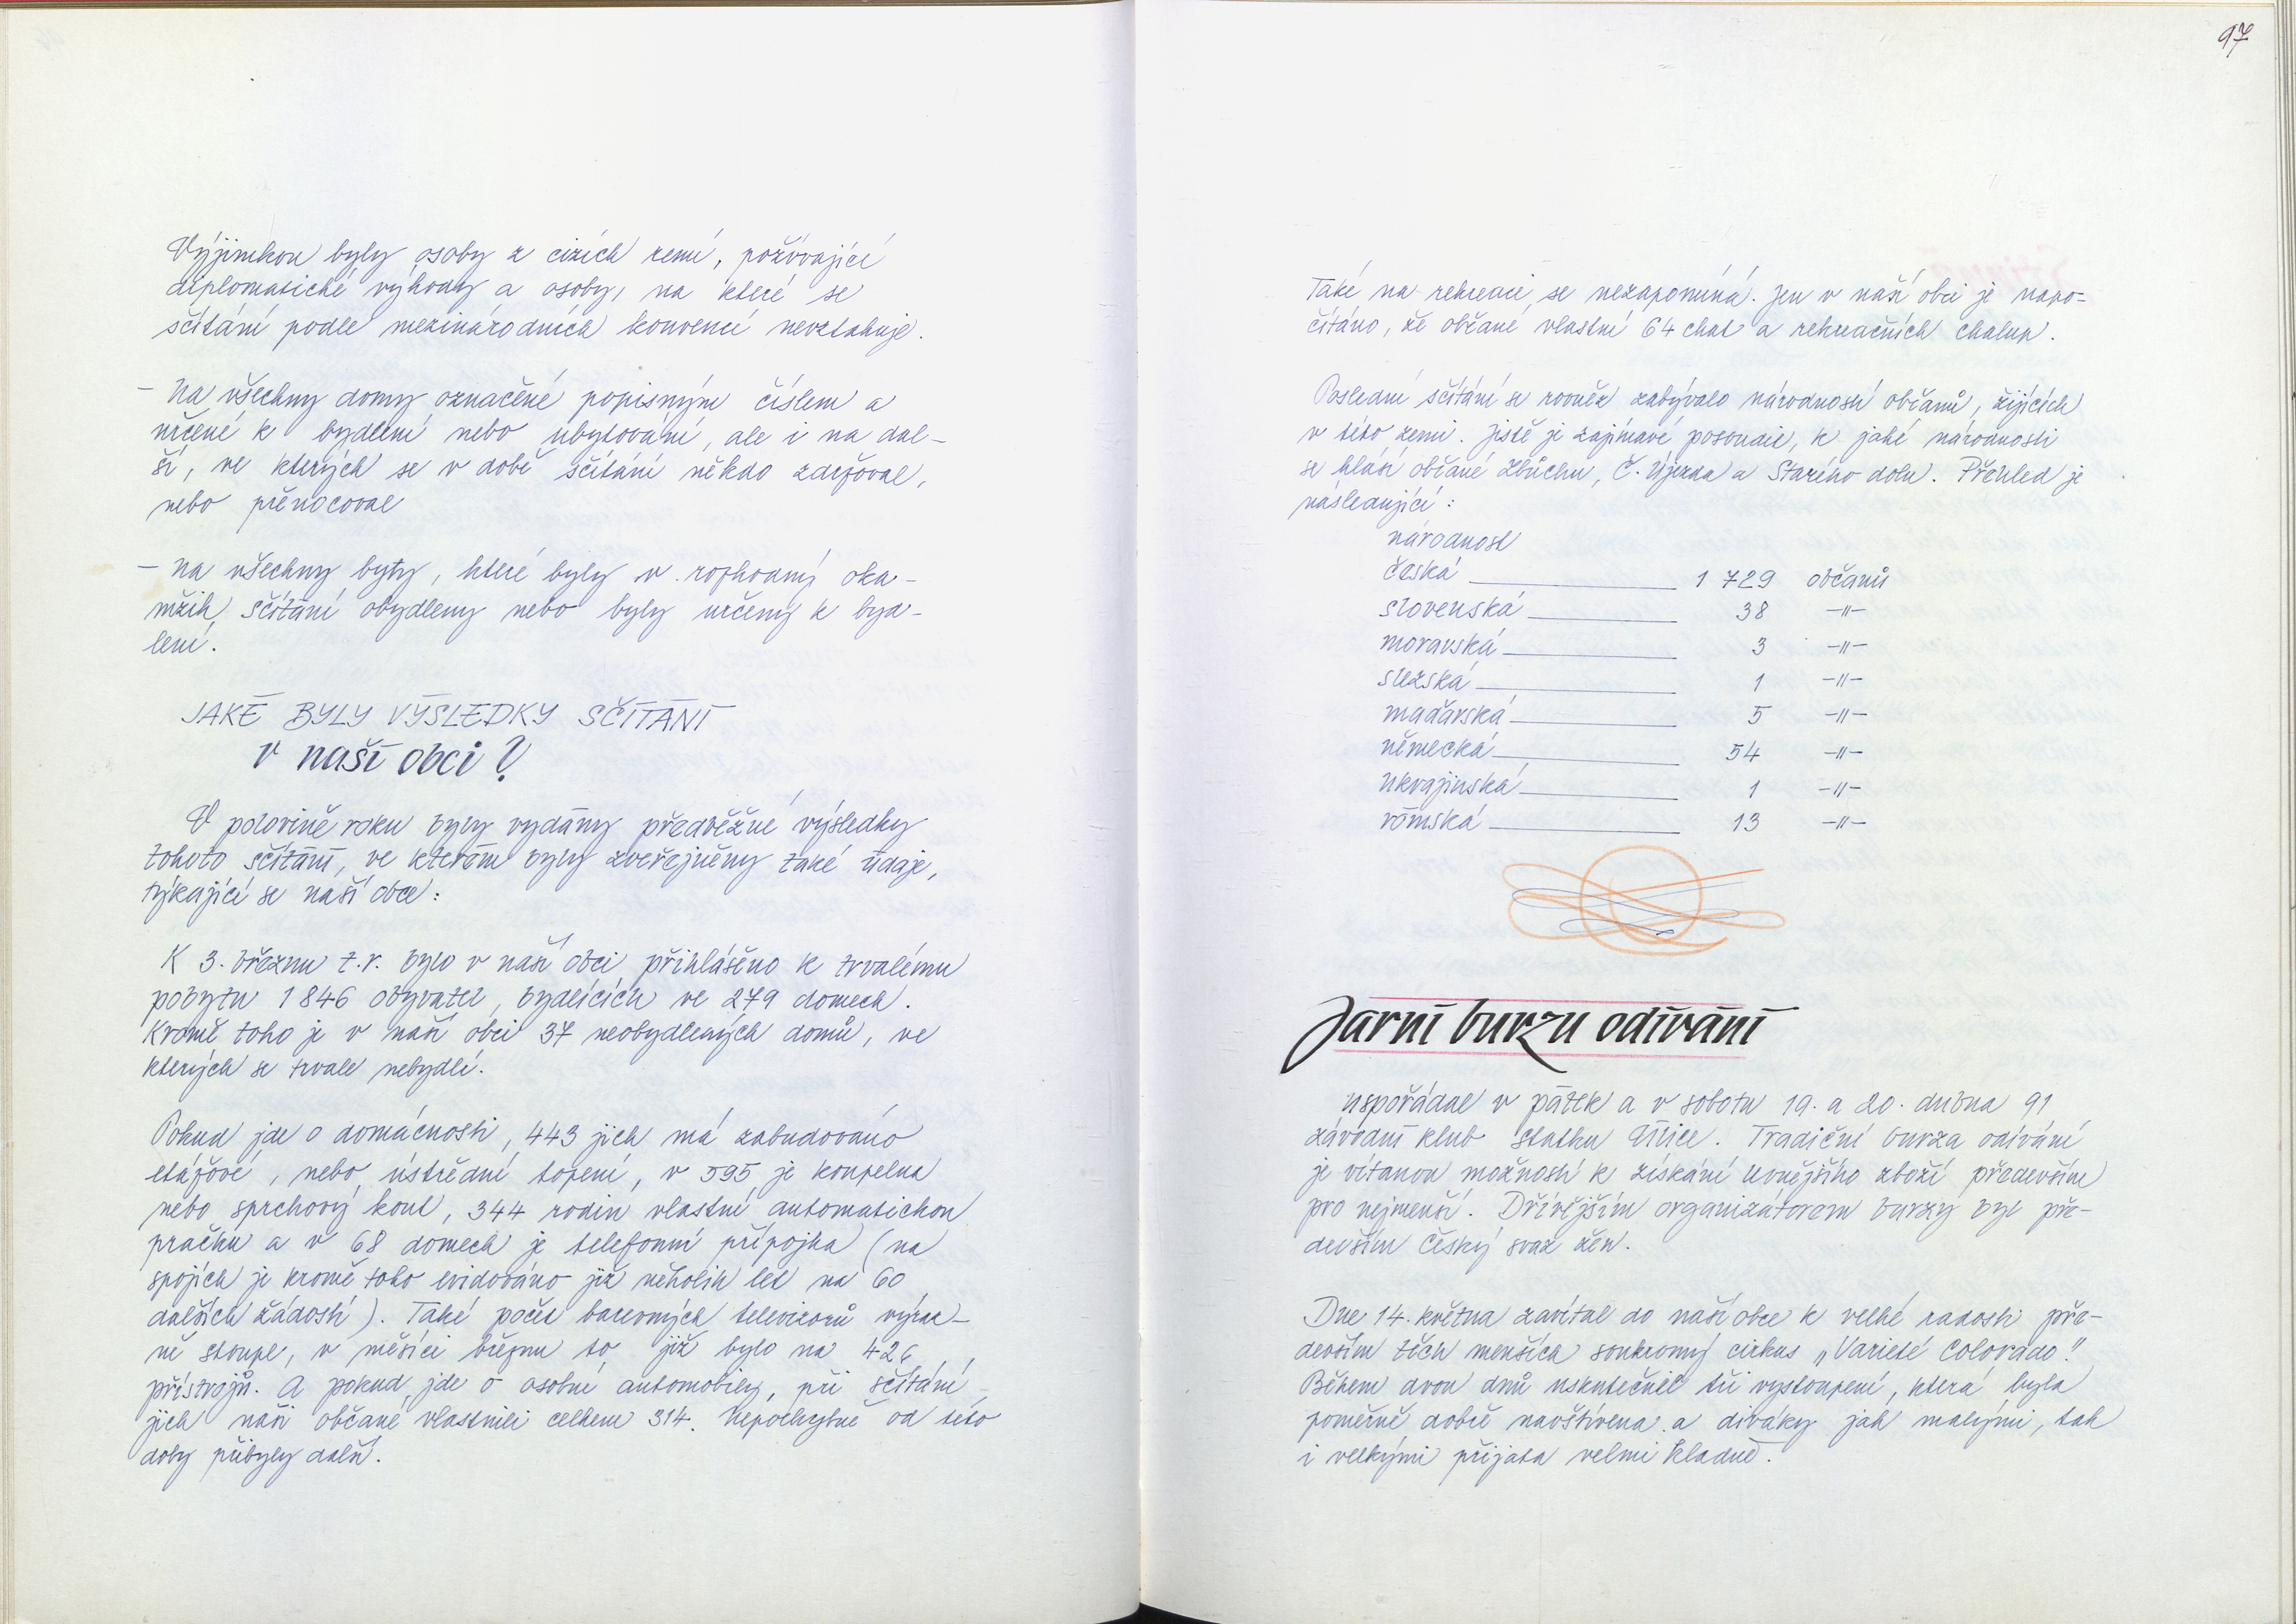 Výjimkou byly osoby z cizích zemí, požívající
diplomatické výhody a osoby, na které se
sčítání podle mezinárodních konvencí nevztahuje.
- Na všechny domy označené popisným číslem a
určené k bydlení nebo ubytování, ale i na dal-
ší, ve kterých se v době sčítání někdo zdržoval,
nebo přenocoval
- na všechny byty, které byly v rozhodný oka-
mžik sčítání obydleny nebo byly určeny k byd-
lení.
JAKÉ BYLY VÝSLEDKY SČÍTÁNÍ
v naší obci?
V polovině roku byly vydány předběžné výsledky
tohoto sčítání, ve kterém byly zveřejněny také údaje,
týkající se naší obce:
K 3. březnu t.r. bylo v naší obci přihlášeno k trvalému
pobytu 1846 obyvatel, bydlících ve 279 domech.
Kromě toho je v naší obci 37 neobydlených domů, ve
kterých se trvale nebydlí.
Pokud jde o domácnosti, 443 jich má zabudováno
etážové, nebo ústřední topení, v 595 je koupelna
nebo sprchový kout, 344 rodin vlastní automatickou
pračku a v 68 domech je telefonní přípojka (na
spojích je kromě toho evidováno již několik let na 60
dalších žádostí). Také počet barevných televizorů výraz-
ně stoupl, v měsíci březnu to již bylo na 426
přístrojů. A pokud jde o osobní automobily, při sčítání
jich naši občané vlastnili celkem 314. Nepochybně od této
doby přibyly další.
97
Také na rekreaci se nezapomíná. Jen v naší obci je napo-
čítáno, že občané vlastní 64 chat a rekreačních chalup.
Poslední sčítání se rovněž zabývalo národností občanů, žijících
v této zemi. Jistě je zajímavé posoudit, k jaké národnosti
se hlásí občané Zbůchu, Č. Újezda a Starého dolu. Přehled je
následující:
národnost
česká 1 729 občanů
slovenská 38 -"-
moravská 3 -"-
slezská 1 -"-
maďarská 5 -"-
německá 54 -"-
ukrajinská 1 -"-
rómská 13 -"-
Jarní burzu odívání
uspořádal v pátek a v sobotu 19. a 20. dubna 91
závodní klub statku Úlice. Tradiční burza odívání
je vítanou možností k získání levnějšího zboží především
pro nejmenší. Dřívějším organizátorem burzy byl pře-
devším Český svaz žen.
Dne 14. května zavítal do naší obce k velké radosti pře-
devším těch menších soukromý cirkus „Varieté Colorado".
Během dvou dnů uskutečnil tři vystoupení, která byla
poměrně dobře navštívena a diváky jak malými, tak
i velkými přijata velmi kladně.